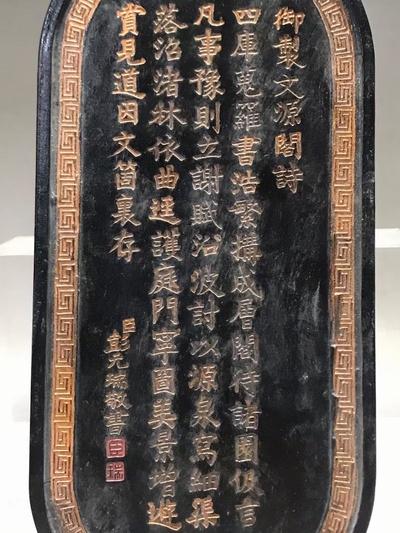 御製文源閣詩
四庫蒐羅書浩繁構成層閣待諸園伋言
凡事豫則立謝賦沿波討以源泉寫細渠
落沼渚林依曲逕護庭門寧圖美景增遊
賞見道因文箇裏存
臣彭元瑞敬書
臣
瑞